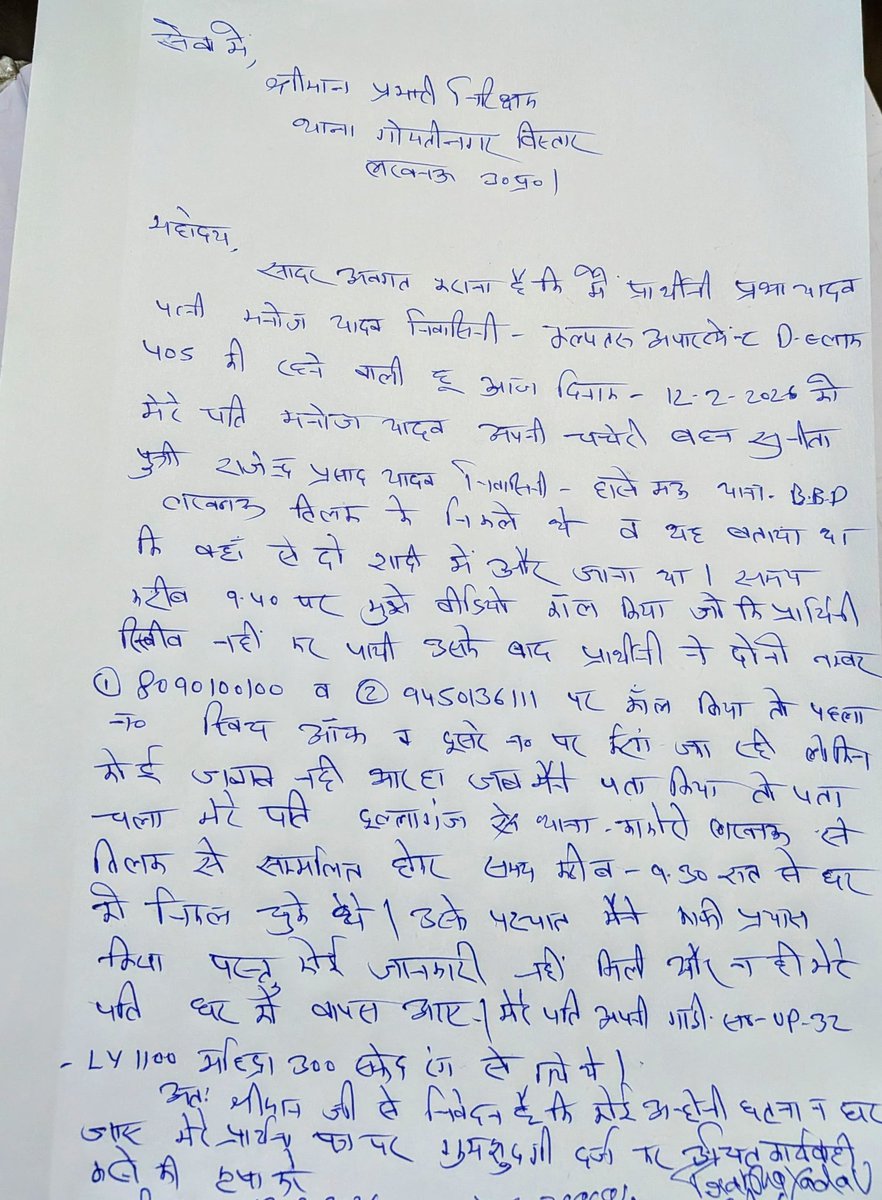 सेवा में,
श्रीमान प्रभारी निरीक्षक
थाना गोमतीनगर विस्तार
लखनऊ उ०प्र०।
महोदय,
सादर अवगत कराना है कि मैं प्रार्थीनी प्रभा यादव
पत्नी मनोज यादव निवासिनी - कल्पतरु अपारटमेन्ट D-ब्लाक
405 की रहने वाली हू आज दिनाक - 12-2-2026 को
मेरे पति मनोज यादव अपनी चचेरी बहन सुनीता
पुत्री राजेन्द्र प्रसाद यादव निवासिनी - हासेमऊ थाना- B.B.D
लखनऊ तिलक के निकले थे व यह बताया था
कि वहाँ से दो शादी में और जाना था। समय
करीब 9.40 पर मुझे वीडियो कॉल किया जो कि प्रार्थिनी
रिसीव नहीं कर पायी उसके बाद प्रार्थीनी ने दोनो नम्बर
① 8090100100 व ② 9450136111 पर कॉल किया तो पहला
न० स्विच ऑफ व दूसरे न० पर रिंग जा रही लेकिन
कोई जवाब नही आ रहा जब मैंने पता किया तो पता
चला मेरे पति थाना - काकोरी लखनऊ से
तिलक से सम्मलित होकर समय करीब - 9.30 रात से घर
को निकल चुके थे। उसके पश्चात मैंने काफी प्रयास
किया परन्तु कोई जानकारी नहीं मिली और न ही मेरे
पति घर में वापस आए। मेरे पति अपनी गाडी सं०-UP-32
- LY 1100 महिंद्रा 300 सफेद रंग से गये थे।
अतः श्रीमान जी से निवेदन है कि कोई अनहोनी घटना न घट
जाए मेरे प्रार्थना पर गुमशुदगी दर्ज कर उचित कार्यवाही
करने की कृपा करे Prabha Yadav